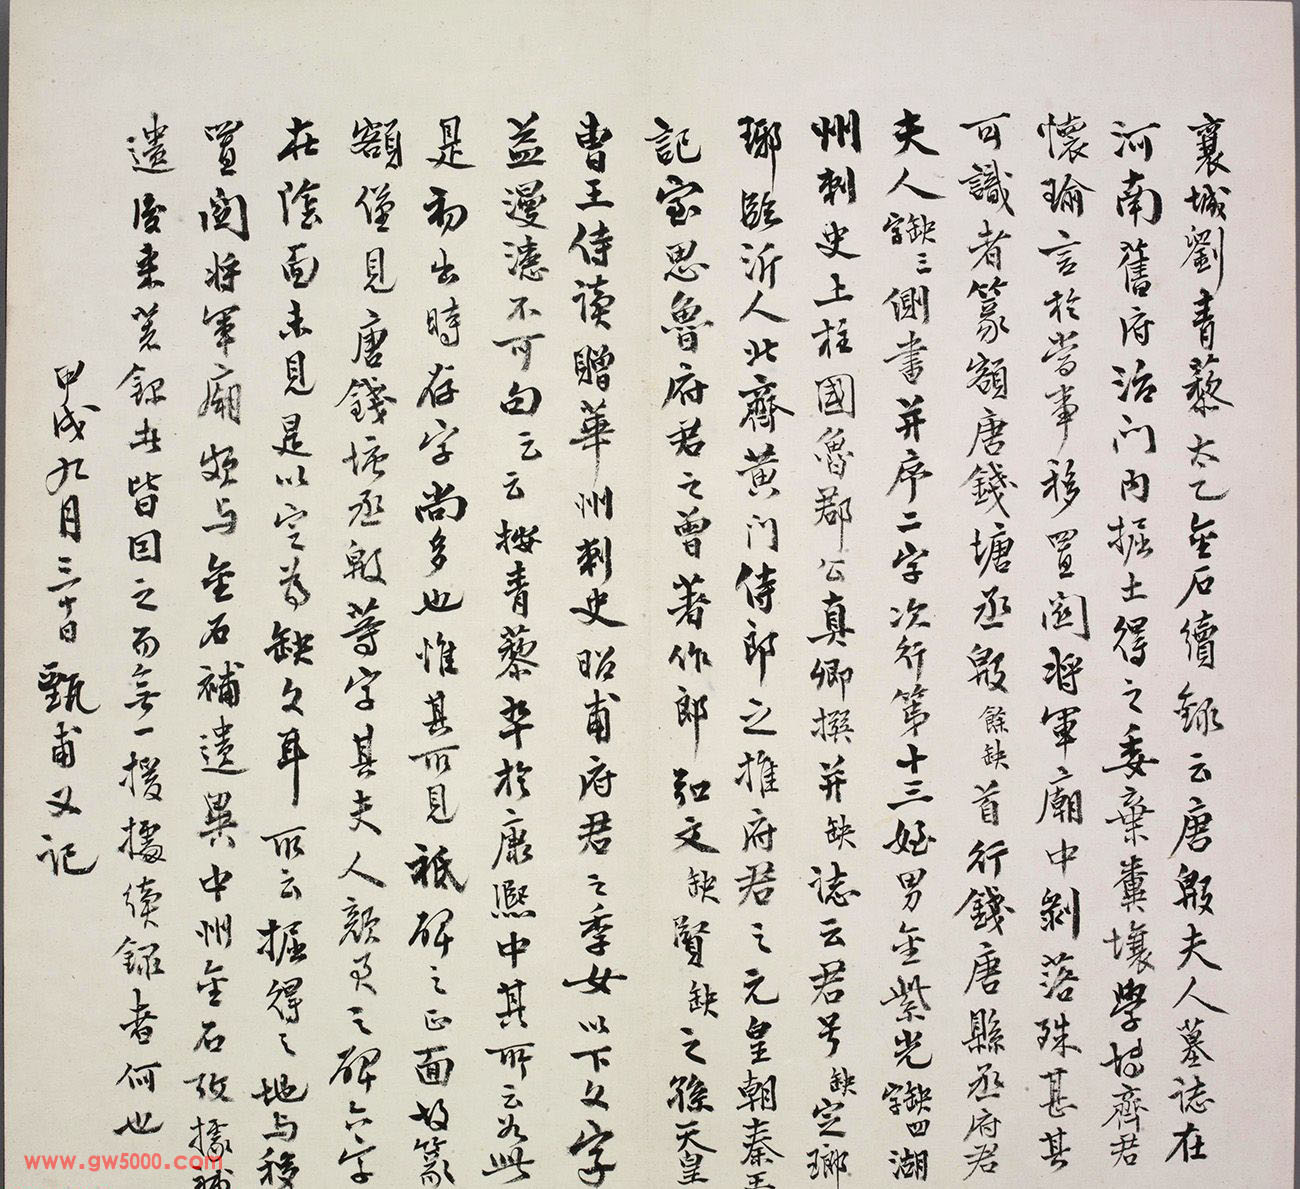 襄城劉青藜太乙金石續錄云唐殷夫人墓誌在
河南舊府治門内掘土得之委棄糞壤學博齊君
懷瑜言於當事移置関将軍廟中剝落殊甚其
可識者篆額唐錢塘丞殷餘缺首行錢唐縣丞府君
夫人缺三字側書并序二字次行第十三姪男金紫光缺四字湖
州刺史上柱國魯郡公真卿撰并缺誌云君号缺定瑯
瑯臨沂人北齊黄门侍郎之推府君之元皇朝秦王
記室思魯府君之曾著作郎弘文缺賢缺之孫天皇
曹王侍读贈華州刺史昭甫府君之季女以下文字
益漫漶不可句云云按青藜卒於康熙中其所云如此
是初出時存字尚多也惟其所見祇碑之正面故篆
額僅見唐錢塘丞殷等字其夫人顏君之碑六字
在陰面未見是以定为缺文耳所云掘得之地与移
置関将軍廟頗与金石補遺異中州金石攷據補
遺後来著錄者皆因之而無一援據續錄者何也
甲戌九月三十日甄甫又記
www.gw5000.com